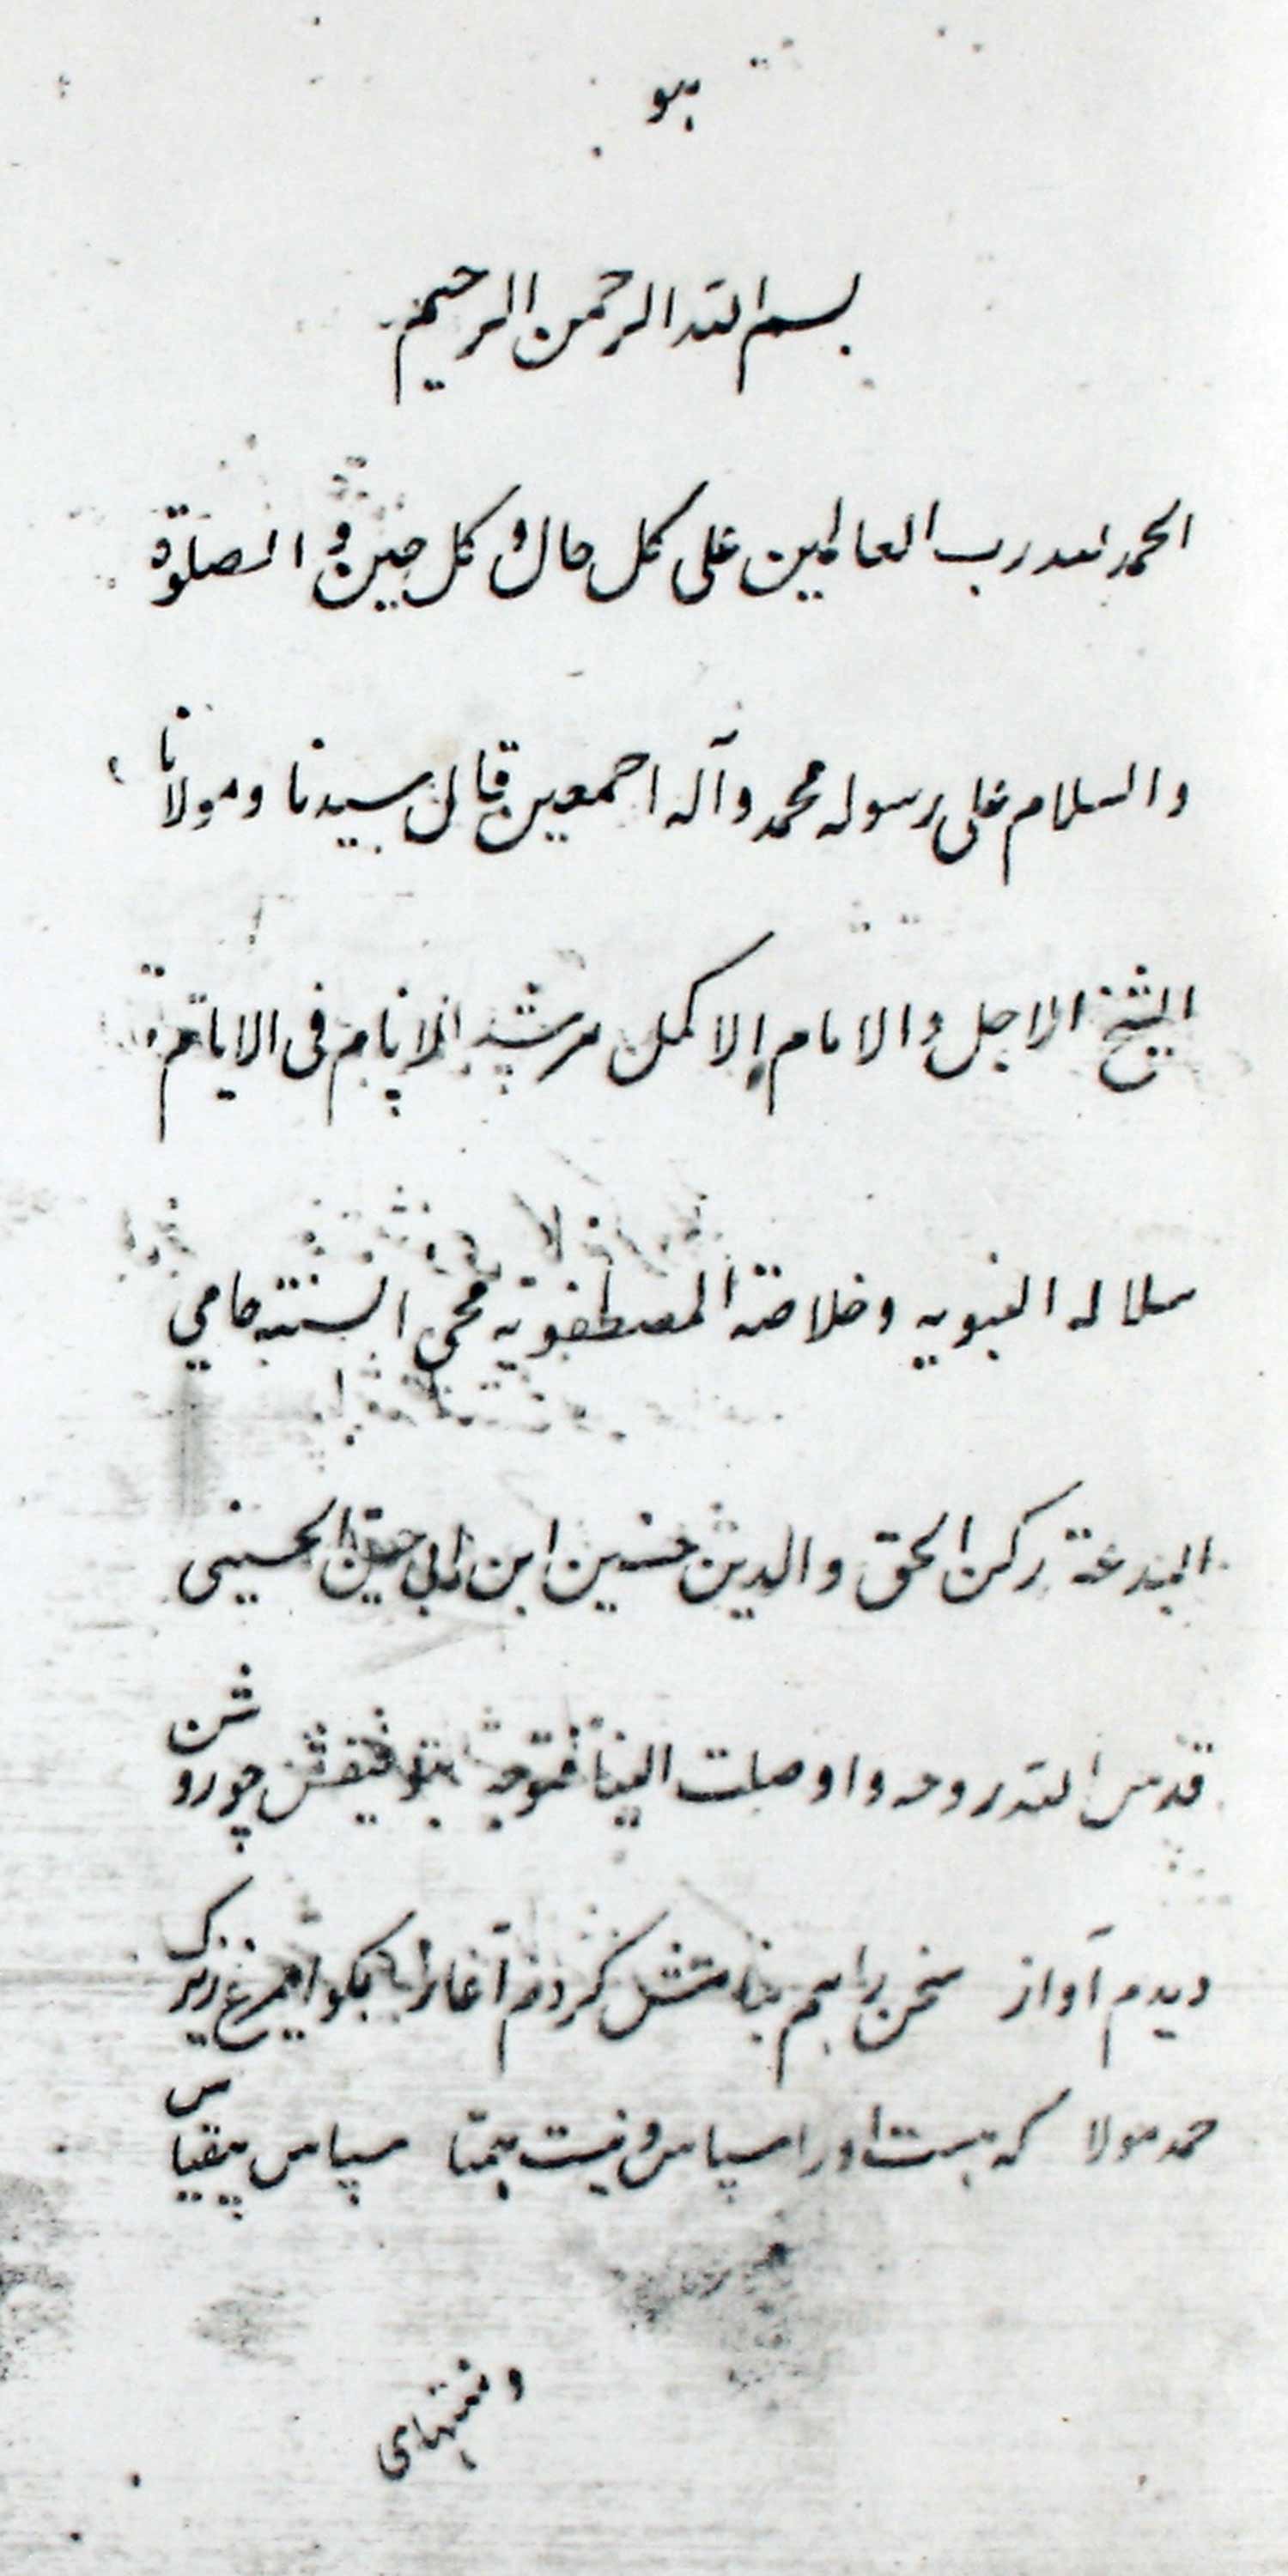 هو
بسم الله الرحمن الرحیم
الحمد لله رب العالمین علی کل حال و کل حین و الصلوة
والسلام علی رسوله محمد وآله اجمعین قال سیدنا ومولانا
الشیخ الاجل والامام الاکمل مرشد الانام فی الایام
سلاله النبویه وخلاصة المصطفویه محی السنته ماحي
البدعة رکن الحق والدین حسین ابن ابی حسین الحسینی
قدس الله روحه واوصلت الینا فتوحه بتوفیقش چو روشن
دیدم آواز سخن را هم بنامش کردم آغاز بگو ایمرغ زیرک
حمد مولا که هست او را سپاس و نیست همتا سپاس بیقیاس
ومنتهای